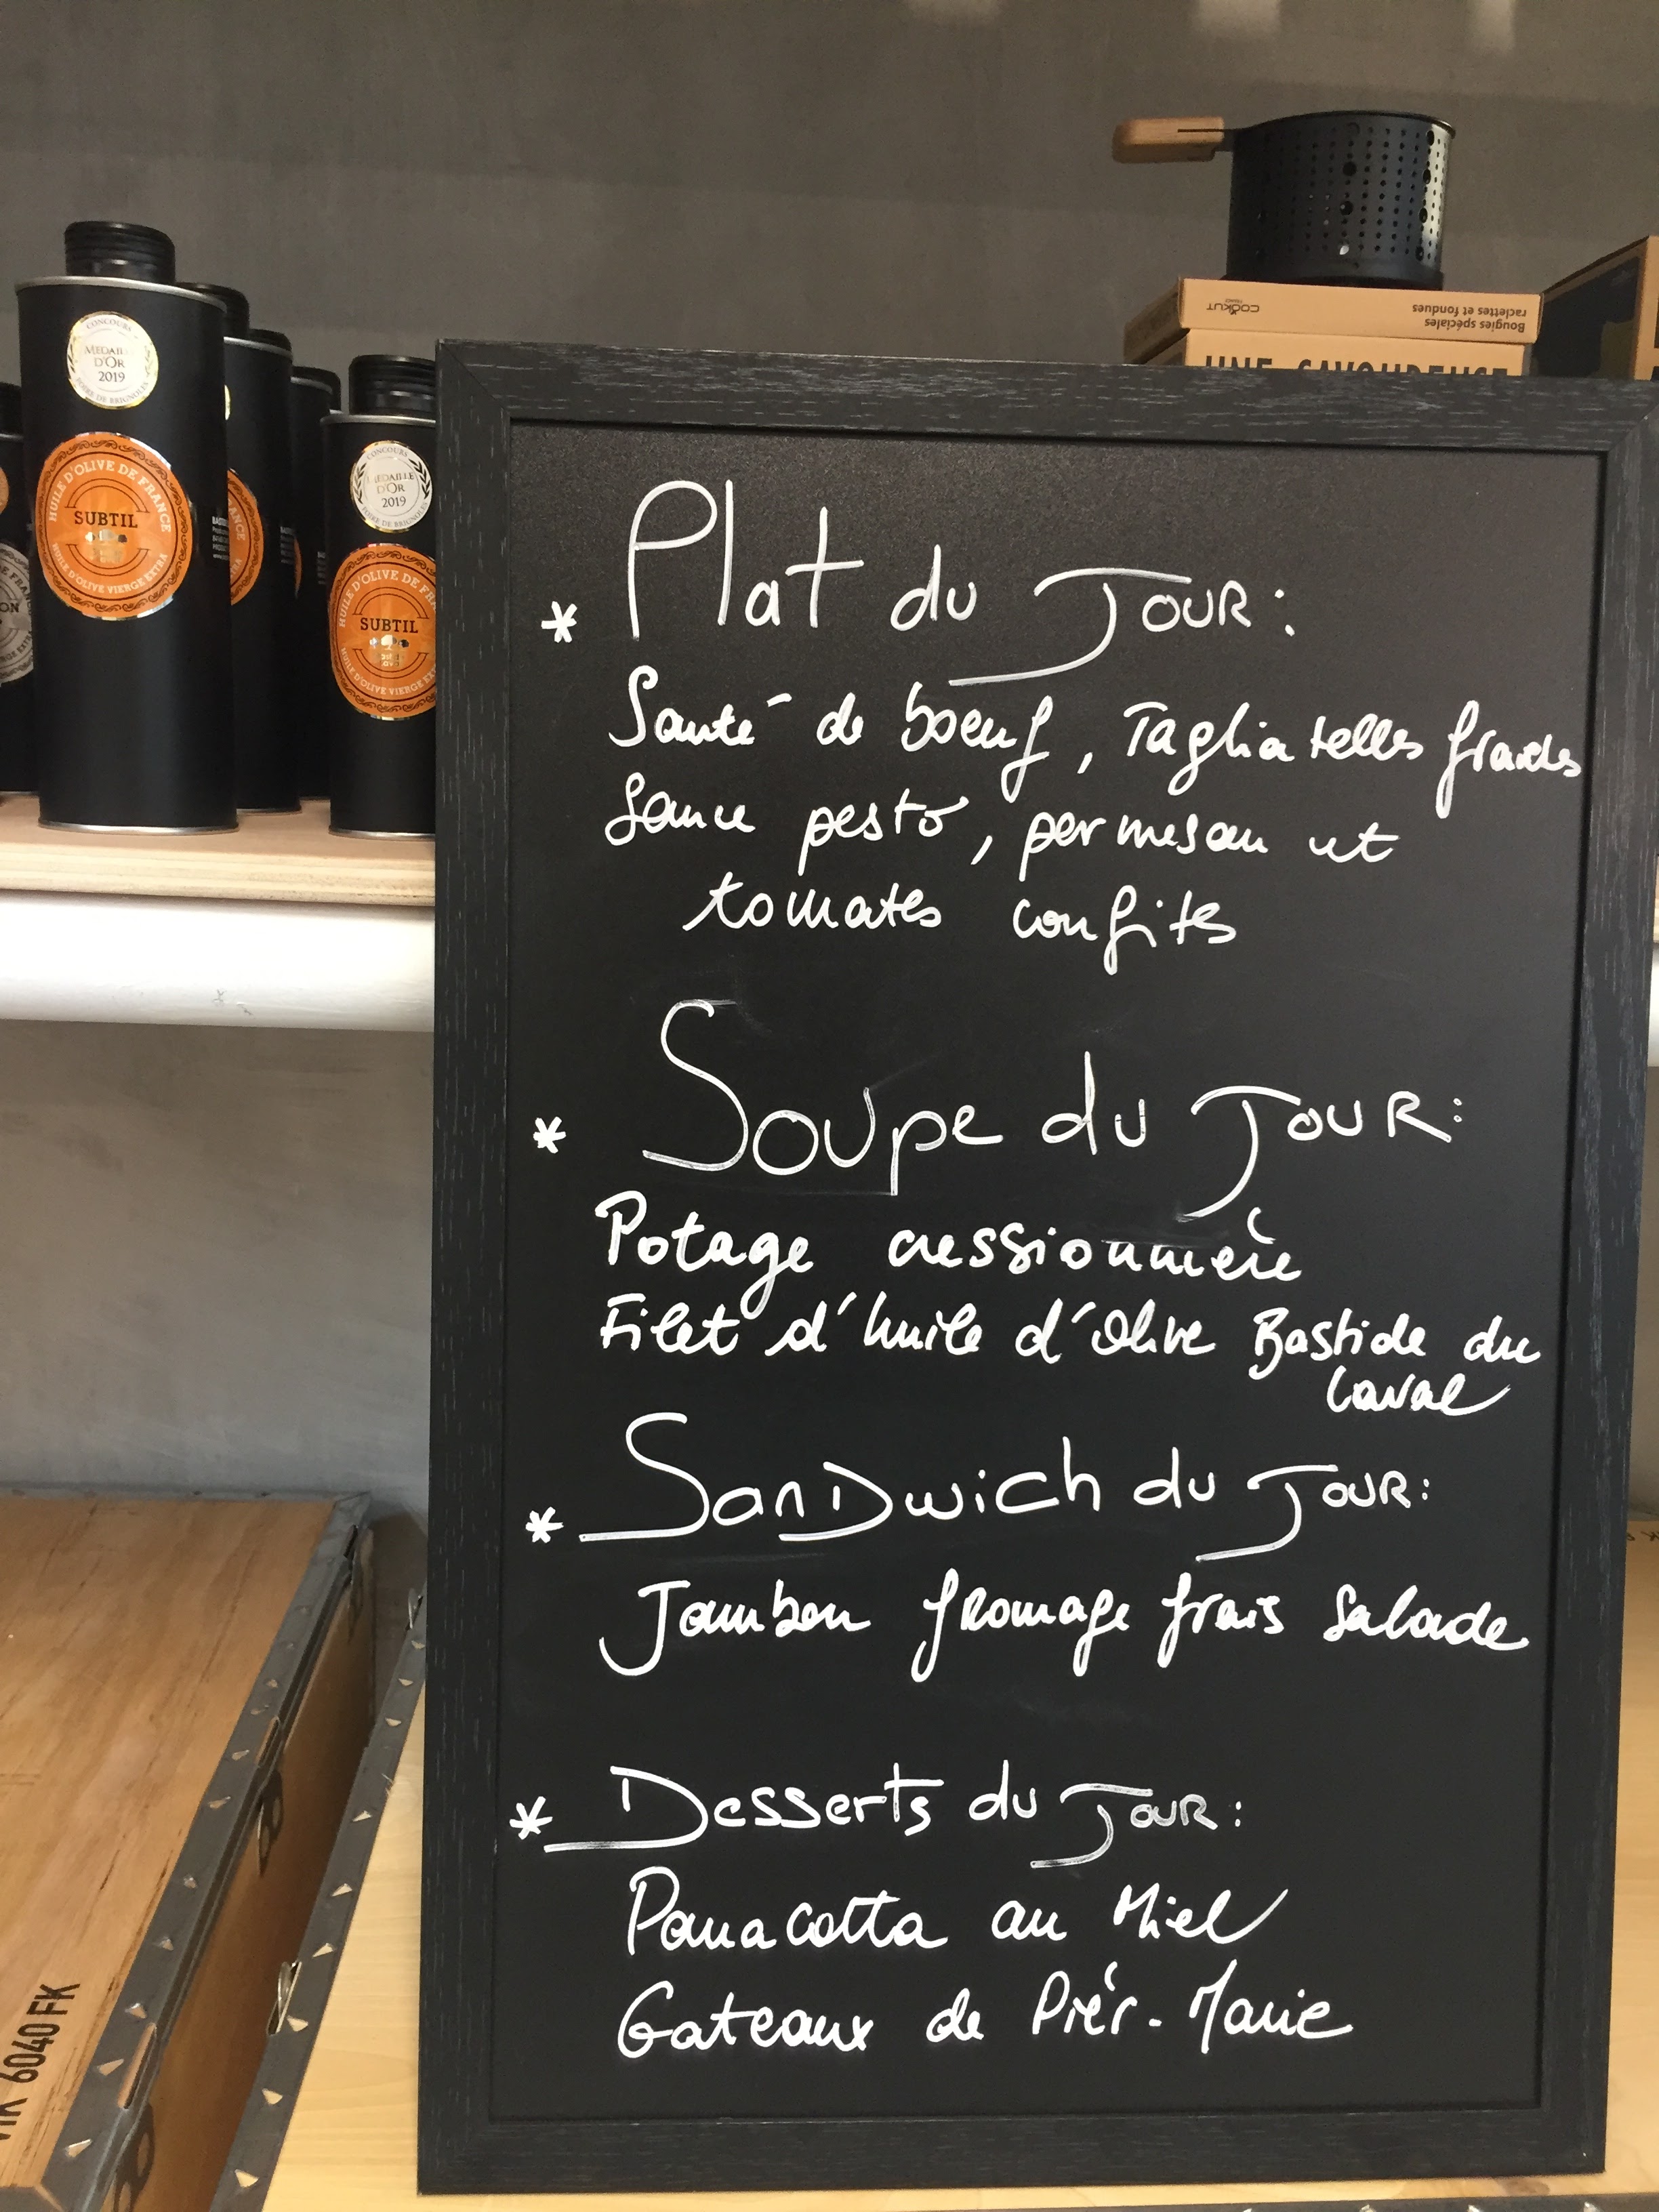 CONCOURS
MEDAILLE
D'OR
2019
FOIRE DE BRIGNOLES
HUILE D'OLIVE DE FRANCE
SUBTIL
HUILE D'OLIVE VIERGE EXTRA
CONCOURS
MEDAILLE
D'OR
2019
FOIRE DE BRIGNOLES
HUILE D'OLIVE DE FR
SUBTIL
HUILE D'OLIVE VIERGE EX
COOKUT
Bougies spéciales
raclettes et fondues
UNE SAVOUREUSE
* Plat du JOUR:
Sauté de boeuf, Tagliatelles fraiches
Sauce pesto, parmesan et
tomates confites
* Soupe du JOUR:
Potage cressionnière
Filet d'huile d'olive Bastide du
Laval
* SanDwich du JOUR:
Jambon fromage frais Salade
* Desserts du JOUR:
Panacotta au Miel
Gateaux de Pièr-Marie
6040 FK